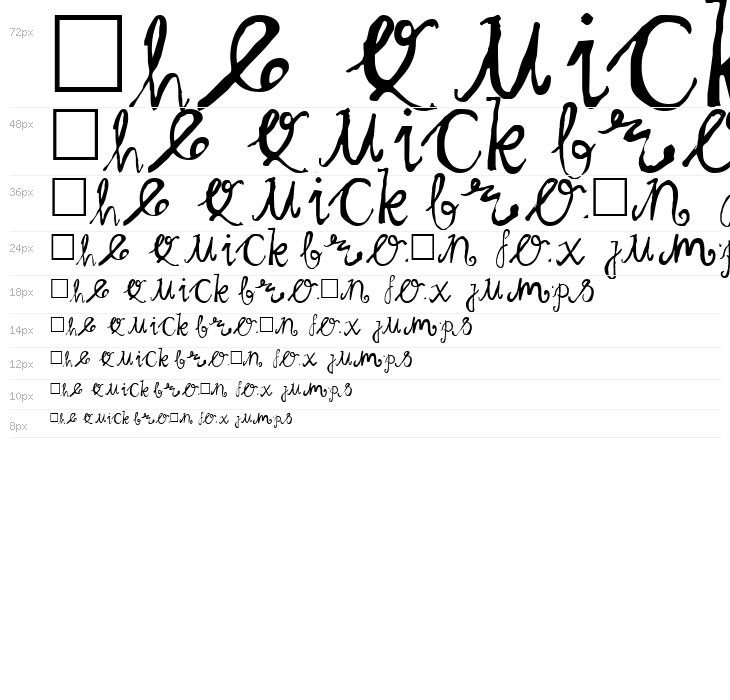 72px □he quick
48px □he quick bro
36px □he quick bro.□n
24px □he quick bro.□n fo.x jump
18px □he quick bro.□n fo.x jumps
14px □he quick bro.□n fo.x jumps
12px □he quick bro.□n fo.x jumps
10px □he quick bro.□n fo.x jumps
8px □he quick bro.□n fo.x jumps